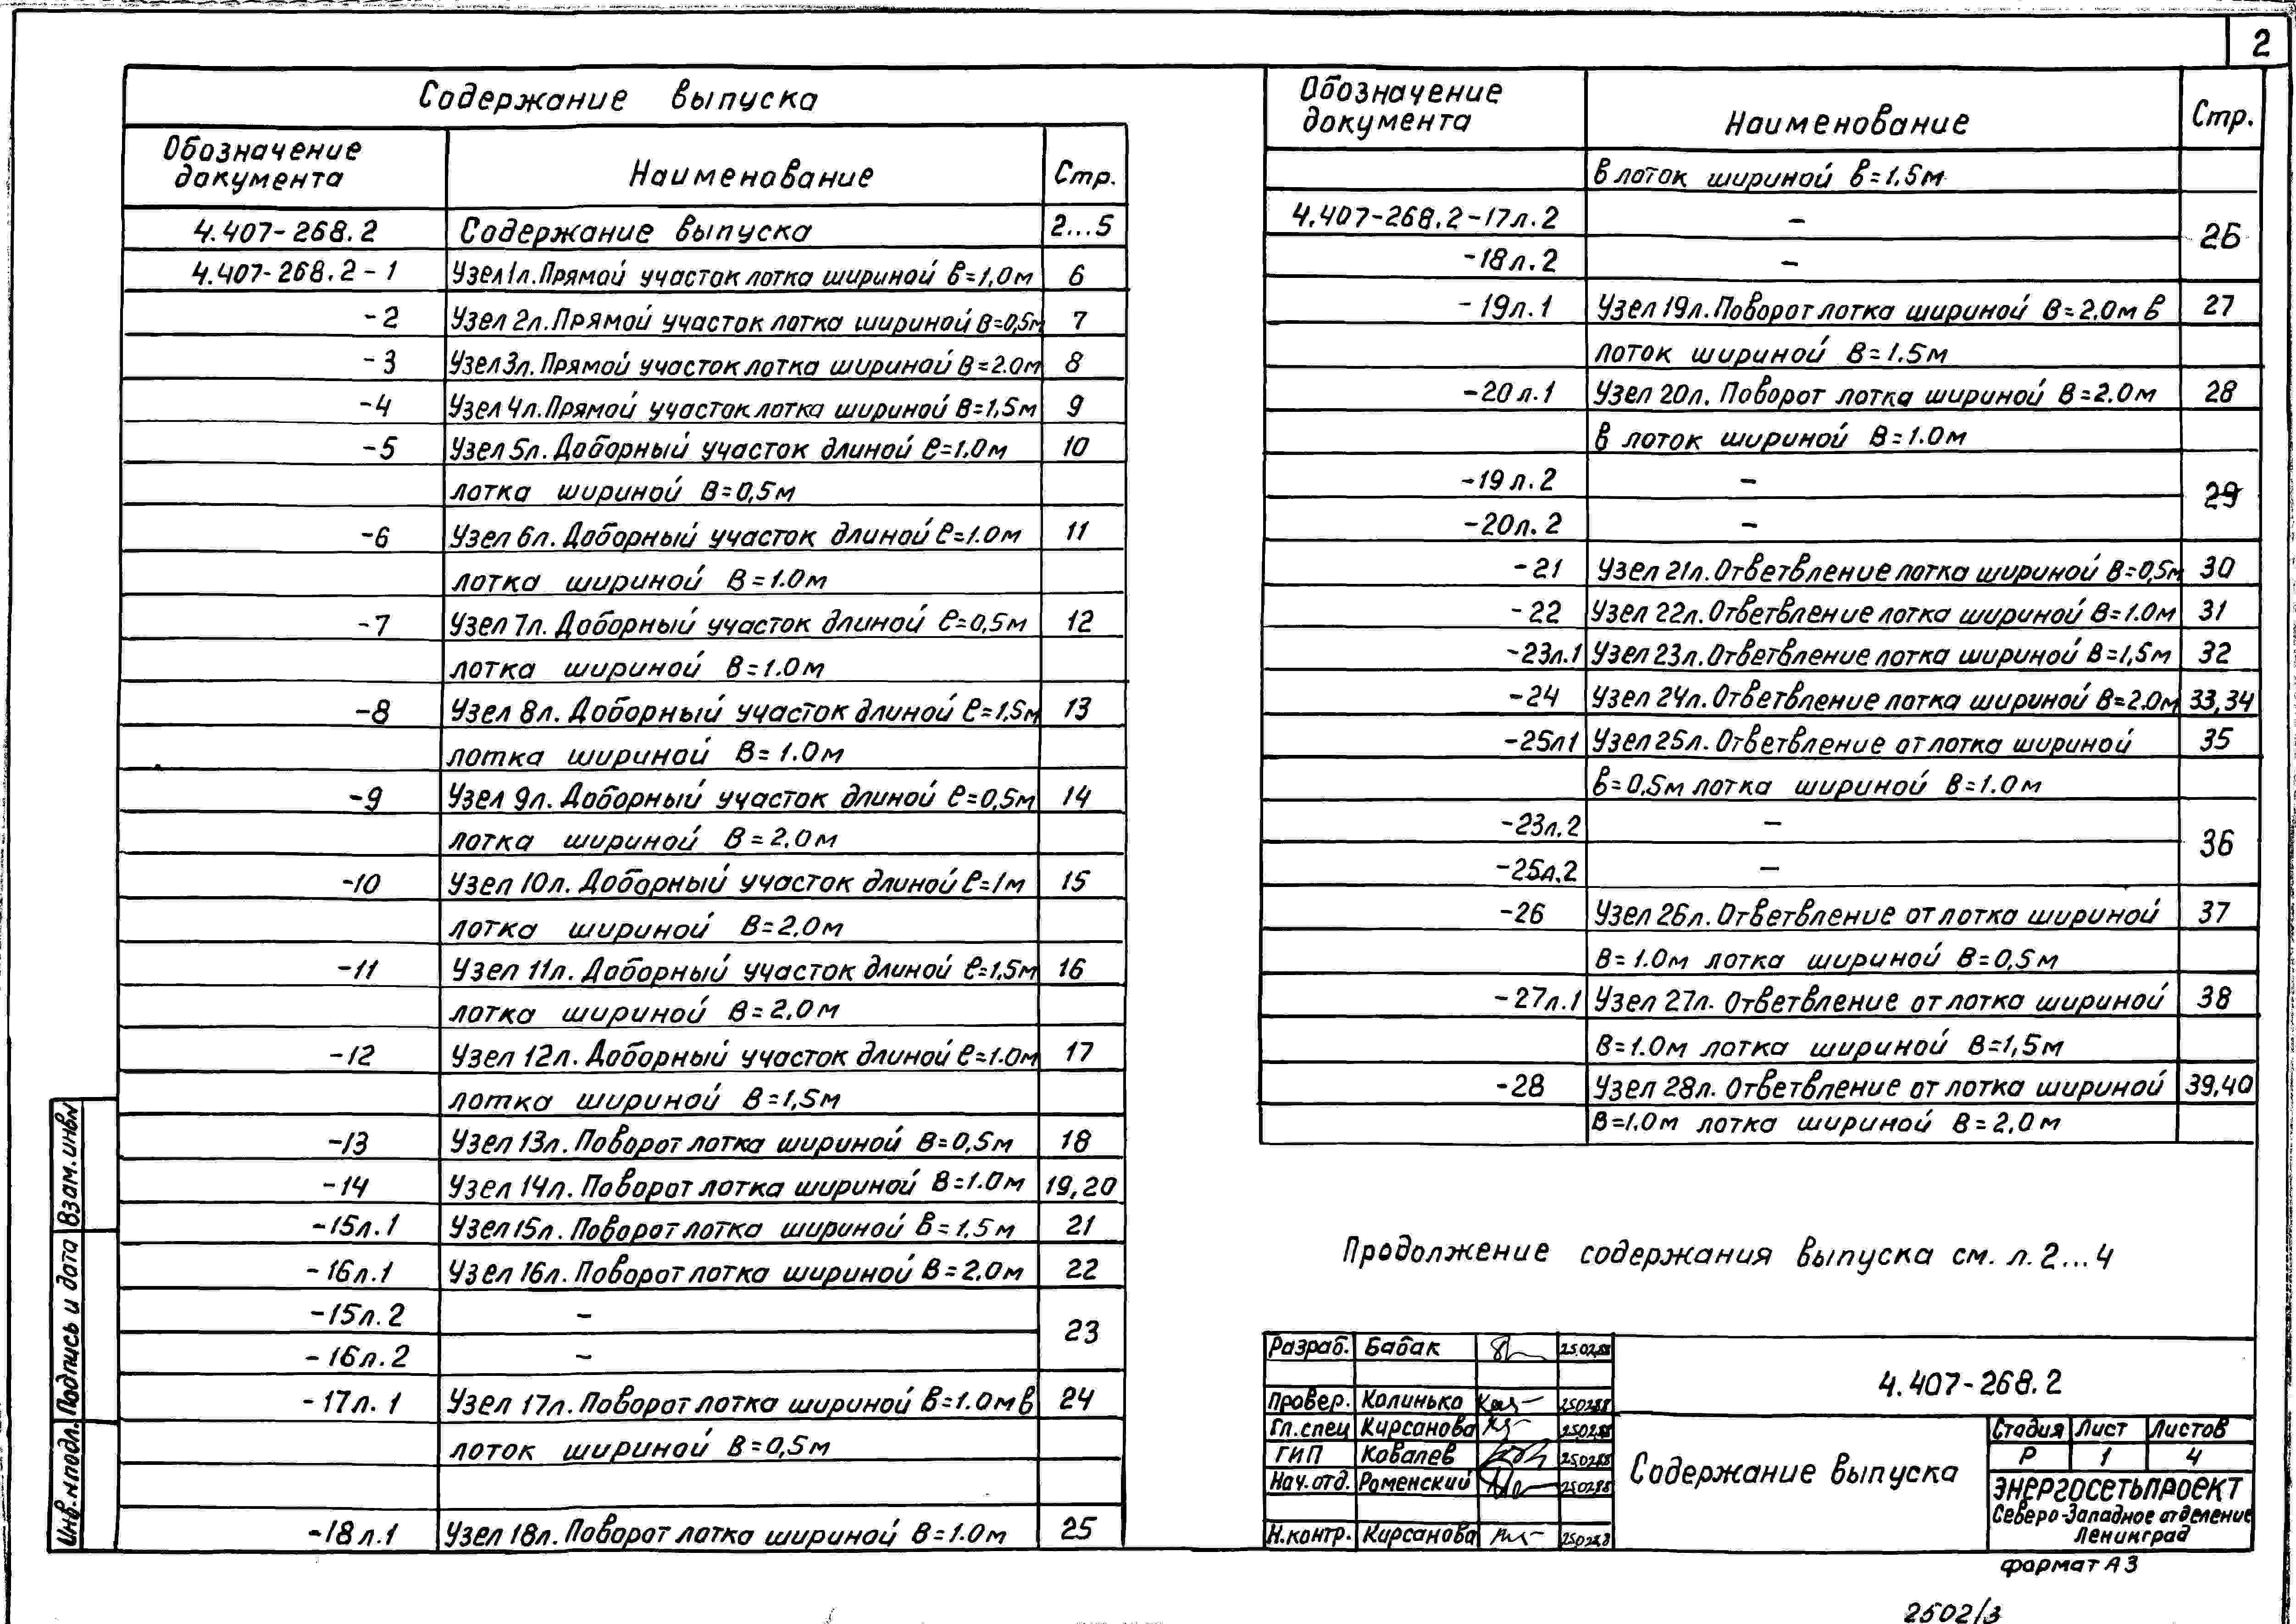 2
Содержание выпуска
Обозначение документа Наименование Стр.
4.407-268.2 Содержание выпуска 2...5
4.407-268.2-1 Узел 1л. Прямой участок лотка шириной в=1,0м 6
-2 Узел 2л. Прямой участок лотка шириной В=0,5м 7
-3 Узел 3л. Прямой участок лотка шириной В=2.0м 8
-4 Узел 4л. Прямой участок лотка шириной В=1,5м 9
-5 Узел 5л. Доборный участок длиной ℓ=1.0м 10
лотка шириной В=0,5м
-6 Узел 6л. Доборный участок длиной ℓ=1.0м 11
лотка шириной В=1.0м
-7 Узел 7л. Доборный участок длиной ℓ=0,5м 12
лотка шириной В=1.0м
-8 Узел 8л. Доборный участок длиной ℓ=1,5м 13
лотка шириной В=1.0м
-9 Узел 9л. Доборный участок длиной ℓ=0,5м 14
лотка шириной В=2,0м
-10 Узел 10л. Доборный участок длиной ℓ=1м 15
лотка шириной В=2,0м
-11 Узел 11л. Доборный участок длиной ℓ=1,5м 16
лотка шириной В=2,0м
-12 Узел 12л. Доборный участок длиной ℓ=1.0м 17
лотка шириной В=1,5м
-13 Узел 13л. Поворот лотка шириной В=0,5м 18
-14 Узел 14л. Поворот лотка шириной В=1.0м 19,20
-15л.1 Узел 15л. Поворот лотка шириной В=1,5м 21
-16л.1 Узел 16л. Поворот лотка шириной В=2,0м 22
-15л.2 –
23
-16л.2 –
-17л.1 Узел 17л. Поворот лотка шириной В=1.0м в 24
лоток шириной В=0,5м
-18л.1 Узел 18л. Поворот лотка шириной В=1.0м 25
Обозначение документа Наименование Стр.
в лоток шириной в=1.5м
4.407-268.2-17л.2 –
26
-18л.2 –
-19л.1 Узел 19л. Поворот лотка шириной В=2.0м в 27
лоток шириной В=1.5м
-20л.1 Узел 20л. Поворот лотка шириной В=2.0м 28
в лоток шириной В=1.0м
-19л.2 –
29
-20л.2 –
-21 Узел 21л. Ответвление лотка шириной В=0,5м 30
-22 Узел 22л. Ответвление лотка шириной В=1.0м 31
-23л.1 Узел 23л. Ответвление лотка шириной В=1,5м 32
-24 Узел 24л. Ответвление лотка шириной В=2.0м 33,34
-25л1 Узел 25л. Ответвление от лотка шириной 35
в=0,5м лотка шириной В=1.0м
-23л.2 –
36
-25л.2 –
-26 Узел 26л. Ответвление от лотка шириной 37
В=1.0м лотка шириной В=0,5м
-27л.1 Узел 27л. Ответвление от лотка шириной 38
В=1.0м лотка шириной В=1,5м
-28 Узел 28л. Ответвление от лотка шириной 39,40
В=1.0м лотка шириной В=2,0м
Продолжение содержания выпуска см. л. 2...4
Разраб. Бабак 25.02.88
Провер. Калинько 250288
Гл.спец Кирсанова 250288
ГИП Ковалев 250288
Нач.отд. Роменский 250288
Н.контр. Кирсанова 250288
4.407-268.2
Содержание выпуска
Стадия Лист Листов
Р 1 4
ЭНЕРГОСЕТЬПРОЕКТ
Северо-Западное отделение
Ленинград
формат А3
2502/3
Инв.Nподл. Подпись и дата Взам.инвN